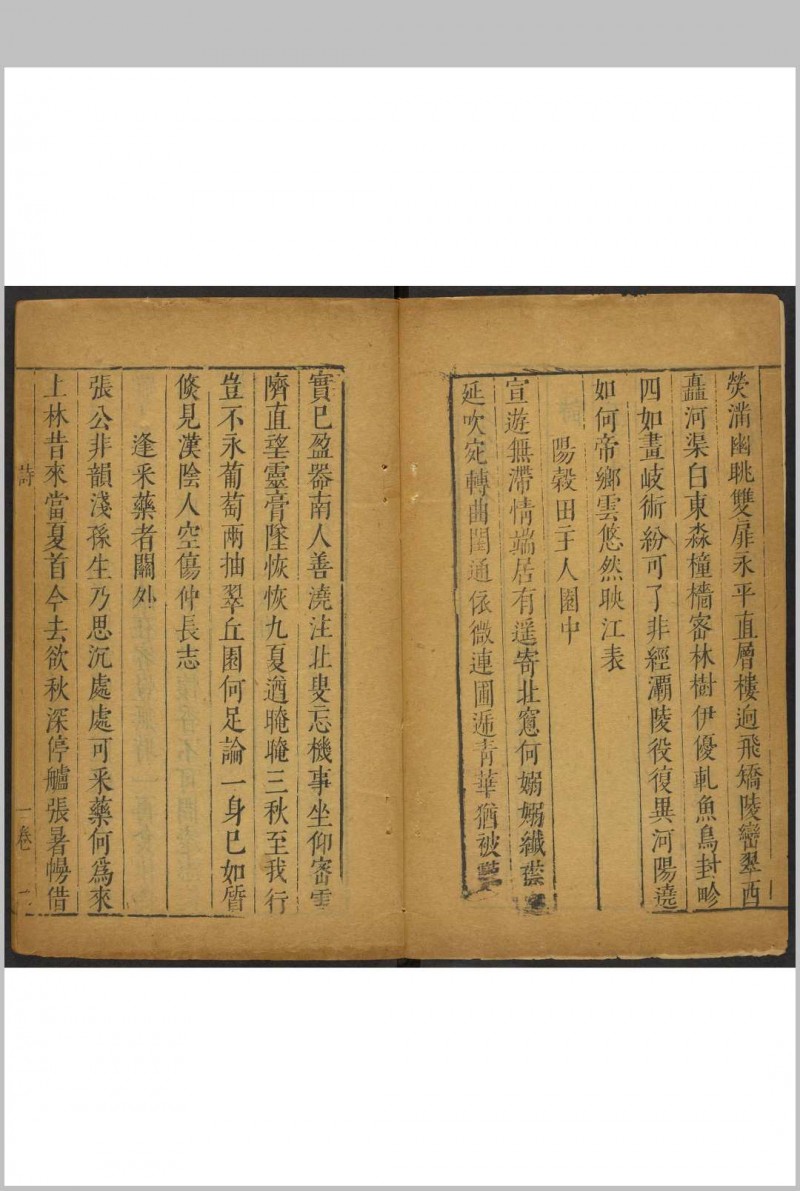 熒潏幽眺雙扉永平直層樓逈飛矯陵巒翠西
矗河渠白東淼橦檣密林樹伊優軋魚鳥封畛
四如畫岐術紛可了非經灞陵役復異河陽遶
如何帝鄉雲悠然映江表
陽穀田主人園中
宣遊無滯情端居有遥寄北窻何嫋嫋纖蘂
延吹定轉曲閨通依微連圃遞青華猶被
實已盈器南人善澆注北叟忘機事坐仰密雲
隮直望靈膏墜恢恢九夏遒晻晻三秋至我行
豈不永葡萄兩抽翠丘園何足論一身已如贅
倐見漢陰人空傷仲長志
逢釆藥者關外
張公非韻淺孫生乃思沉處處可釆藥何爲來
上林昔來當夏首今去欲秋深停艫張暑幔借
詩
一卷
二